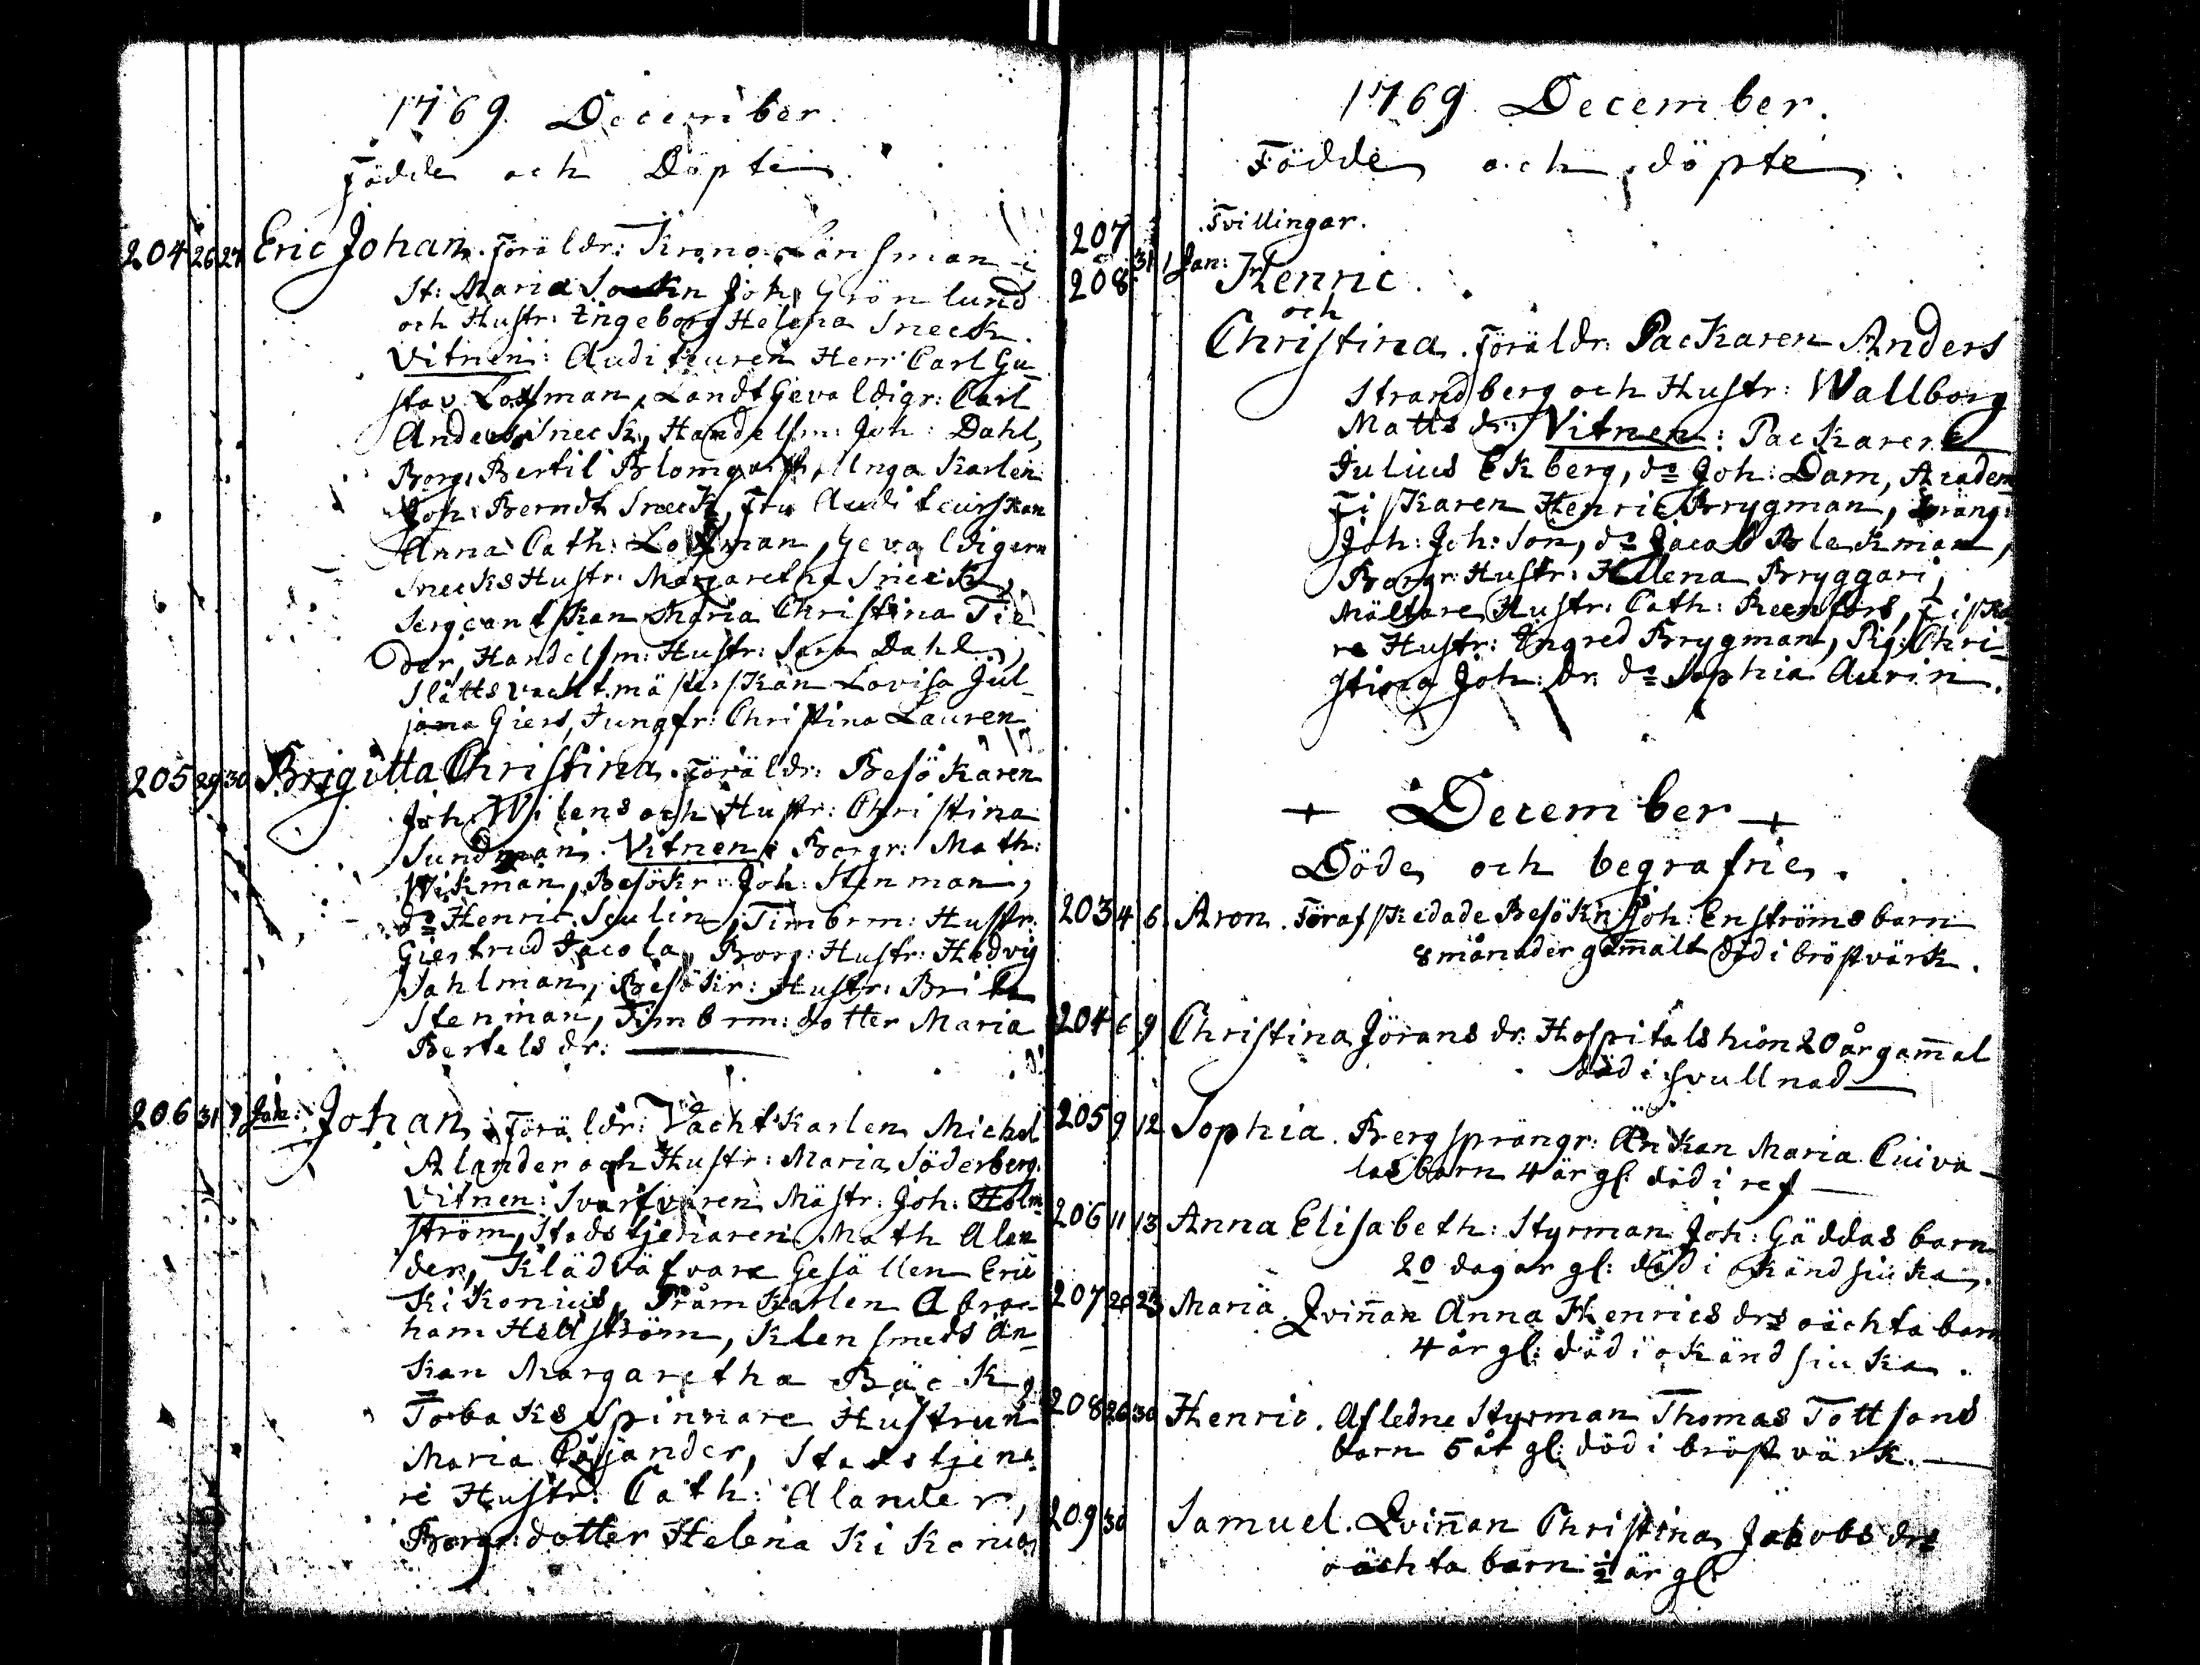 1769. December.
Födde och Döpte
204 26 27 Eric Johan. Föräldr: Krono Länsman i
St: Maria Sockn Joh: Grönlund
och Hustr: Ingeborg Helena Sneck.
Vitnen: Auditeuren Herr Carl Gu-
stav Lossman, Landt Gevaldigr: Carl
Anders Sneck, Handelsm: Joh: Dahl,
Borg: Bertil Blomqvist, Unga Karlen
Joh: Berndt Sneck, Fru Auditeurskan
Anna Cath: Lossman, Gevaldigern
Snecks Hustr: Margaretha Sneck,
Sergeantskan Maria Christina Tie-
der, Handelsm: Hustr: Sara Dahl,
Slåttsvachtmästerskan Lovisa Jul-
jana Giers, Jungfr: Christina Lauren
205 29 30 Brigitta Christina. Föräldr: Besökaren
Joh: Wilens och Hustr: Christina
Sundman. Vitnen: Borgr: Math:
Wikman, Besökr: Joh: Stenman,
do Henric Seulin, Timbrm: Hustr:
Giertrud Jacola, Borg: Hustr: Hedvig
Sahlman, Besökr: Hustr: Brita
Stenman, Timbrm: dotter Maria
Bertels dr:
206 31 1 Jan: Johan. Föräldr: Vachtkarlen Michel
Alander och Hustr: Maria Söderberg.
Vitnen: Svarfvaren Mästr: Joh: Holm-
ström, Stadstjenaren Math Alan
der, Klädväfvare Gesällen Eric
Kikonius, Pråmkarlen Abra-
ham Hellström, Klensmeds Än-
kan Margaretha Bäck,
Tobaks Spinnare Hustrun
Maria Cajander, Stadstjena-
re Hustr: Cath: Alander,
Borgr: dotter Helena Kikonius
1769. December.
Födde och döpte.
207 Tvillingar.
208 31 1 Jan: Henric.
och
Christina. Föräldr: Packaren Anders
Strandberg och Hustr: Wallborg
Matts dr: Vitnen: Packaren
Julius Ekberg, do Joh: Dam, Academ
Fiskaren Henric Brygman, Dräng:
Joh: Joh: Son, do Jacob Blekman,
Borgr: Hustr: Helena Bryggari,
Mältare Hustr: Cath: Reenfors, Fiska
re Hustr: Ingred Brygman, Pig: Chri-
stina Joh: dr: do Sophia Aurin.
+ December +
Döde och begrafne.
203 4 6 Aron. Förafskedade Besökn Joh: Enströms barn
8 månader gammalt död i bröstvärk.
204 6 9 Christina Jörans dr: Hospitalshion 20 år gammal
död i svullnad
205 9 12 Sophia. Bergsprängr: Änkan Maria Cuiva-
las barn 4 år gl: död i ref
206 11 13 Anna Elisabeth: Styrman Joh: Gäddas barn
20 dagar gl: död i okänd siuka.
207 20 23 Maria Qvinnan Anna Henrics drs oächta barn
4 år gl: död i okänd siuka.
208 26 30 Henric. Afledne Styrman Thomas Tottsons
barn 5 år gl: död i bröstvärk.
209 30 Samuel. Qvinnan Christina Jakobs drs
oächta barn 1/2 år gl: